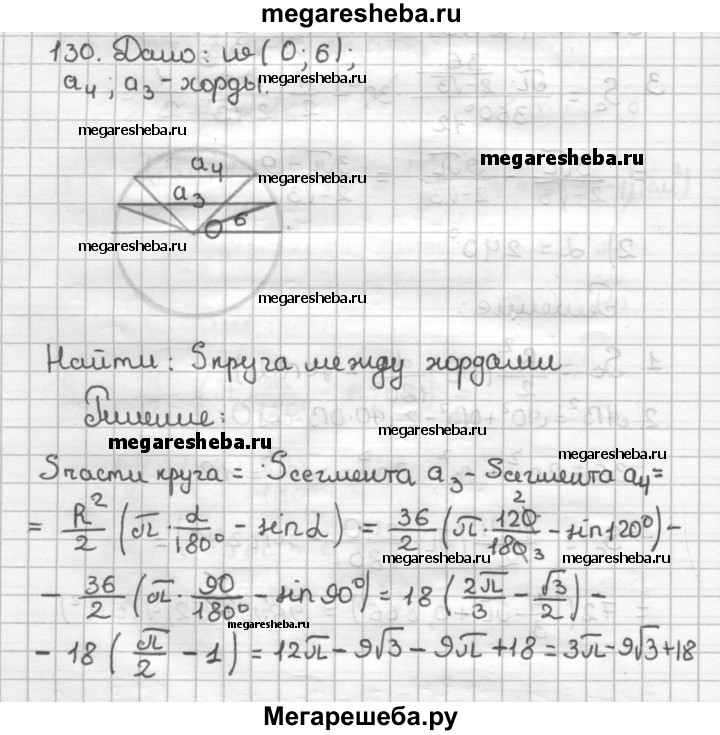 megaresheba.ru
130. Дано: w(0; 6);
a₄; a₃ - хорды.
megaresheba.ru
megaresheba.ru
megaresheba.ru
a₄
a₃
O 6
megaresheba.ru
megaresheba.ru
Найти: Sкруга между хордами
Решение:
megaresheba.ru
megaresheba.ru
megaresheba.ru
Sчасти круга = Sсегмента a₃ - Sсегмента a₄ =
= R²/2 (π · α/180° - sin α) = 36/2 (π · 120 2/180 3 - sin 120°) -
megaresheba.ru
megaresheba.ru
- 36/2 (π · 90/180° - sin 90°) = 18 (2π/3 - √3/2) -
megaresheba.ru
- 18 (π/2 - 1) = 12π - 9√3 - 9π + 18 = 3π - 9√3 + 18
megaresheba.ru
megaresheba.ru
Мегарешеба.ру